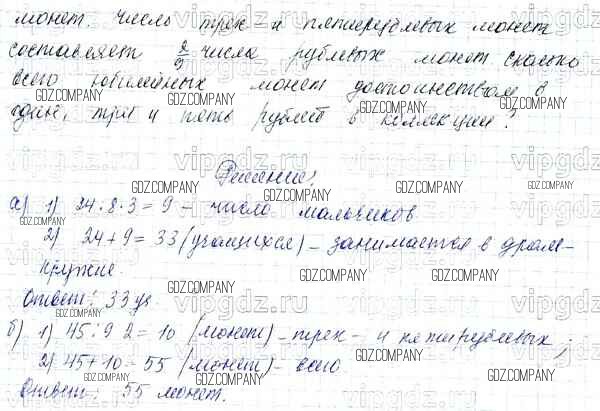 монет. Число трёх и пятирублевых монет
составляет 2/9 числа рублевых монет. Сколько
всего юбилейных монет достоинством в
один, три и пять рублей в коллекции?
Решение:
а) 1) 24:8·3=9 – число мальчиков
2) 24+9=33 (учащихся) – занимается в драм-
кружке.
Ответ: 33 уч.
б) 1) 45:9·2=10 (монет) – трех- и пятирублевых;
2) 45+10=55 (монет) – всего
Ответ: 55 монет.